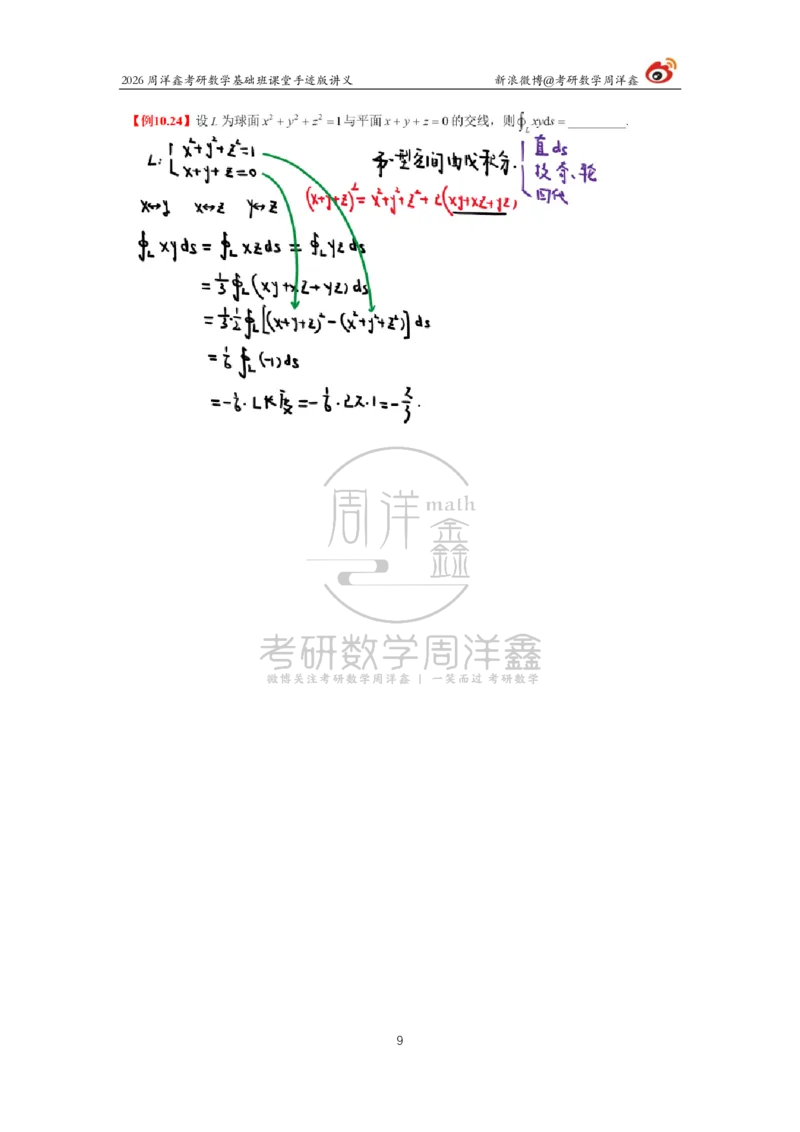 2026周洋鑫考研数学基础班课堂手迹版讲义 新浪微博@考研数学周洋鑫
【例10.24】设L为球面x²+y²+z²=1与平面x+y+z=0的交线，则∮_L xyds=________.
L: { x²+y²+z²=1
x+y+z=0
第一型空间曲线积分.
直ds
技奇、轮
回代
x↔y x↔z y↔z
(x+y+z)²=x²+y²+z²+2(xy+xz+yz)
∮_L xyds=∮_L xzds=∮_L yzds
=1/3∮_L(xy+xz+yz)ds
=1/3·1/2∮_L[(x+y+z)²-(x²+y²+z²)]ds
=1/6∮_L(-1)ds
=-1/6·L长度=-1/6·2π·1=-π/3.
周洋鑫math
考研数学周洋鑫
微博关注考研数学周洋鑫 | 一笑而过 考研数学
9